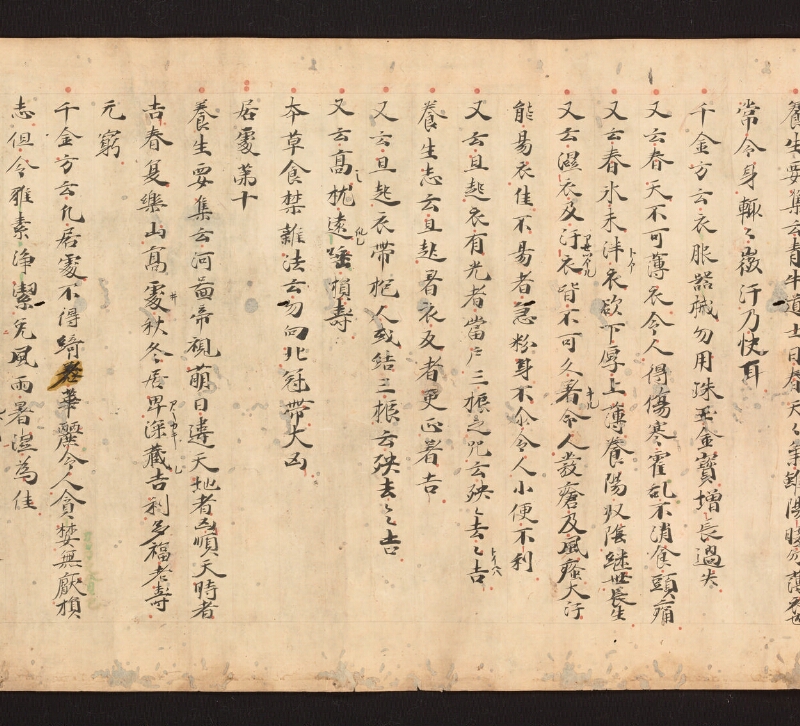 養生要集云青牛道士曰春天天氣雖陽暖勿薄衣也
常令身輙々微汗乃快耳
千金方云衣服器械勿用珠玉金寶增長過失
又云春天不可薄衣令人得傷寒霍乱不消食頭痛
又云春氷未泮衣欲下厚上薄養陽収陰継世長生
又云濕衣及汗衣皆不可久著令人發瘡及風瘙大汗
能昜衣佳不昜者急粉身不尒令人小便不利
又云旦起衣有光者當戸三振之咒云殃々去々吉
養生志云旦起著衣反者更正著吉
又云旦起衣帶抱人或結三振云殃去々吉
又云髙枕遠唾損壽
本草食禁雜法云勿向北冠帶大凶
居處第十
養生要集云河啚帝視萌曰違天地者凶順天時者
吉春夏樂山髙處秋冬居卑深藏吉利多福老壽
元窮
千金方云凡居處不得綺華麗令人貪婪無厭損
志但令雅素淨潔免風雨暑濕為佳